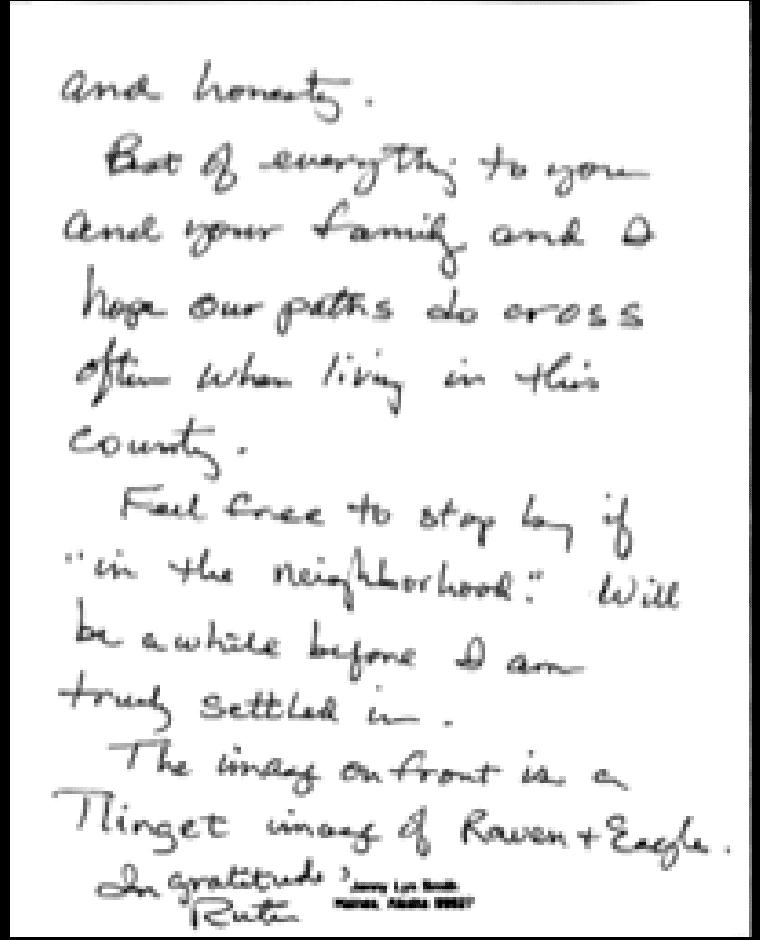 and honesty.
Best of everything to you
and your family and I
hope our paths do cross
often when living in this
county.
Feel free to stop by if
"in the neighborhood." Will
be a while before I am
truly settled in.
The image on front is a
Tlinget image of Raven + Eagle.
In gratitude,
Ruth
Jenny Lyn Smith
Haines, Alaska 99827